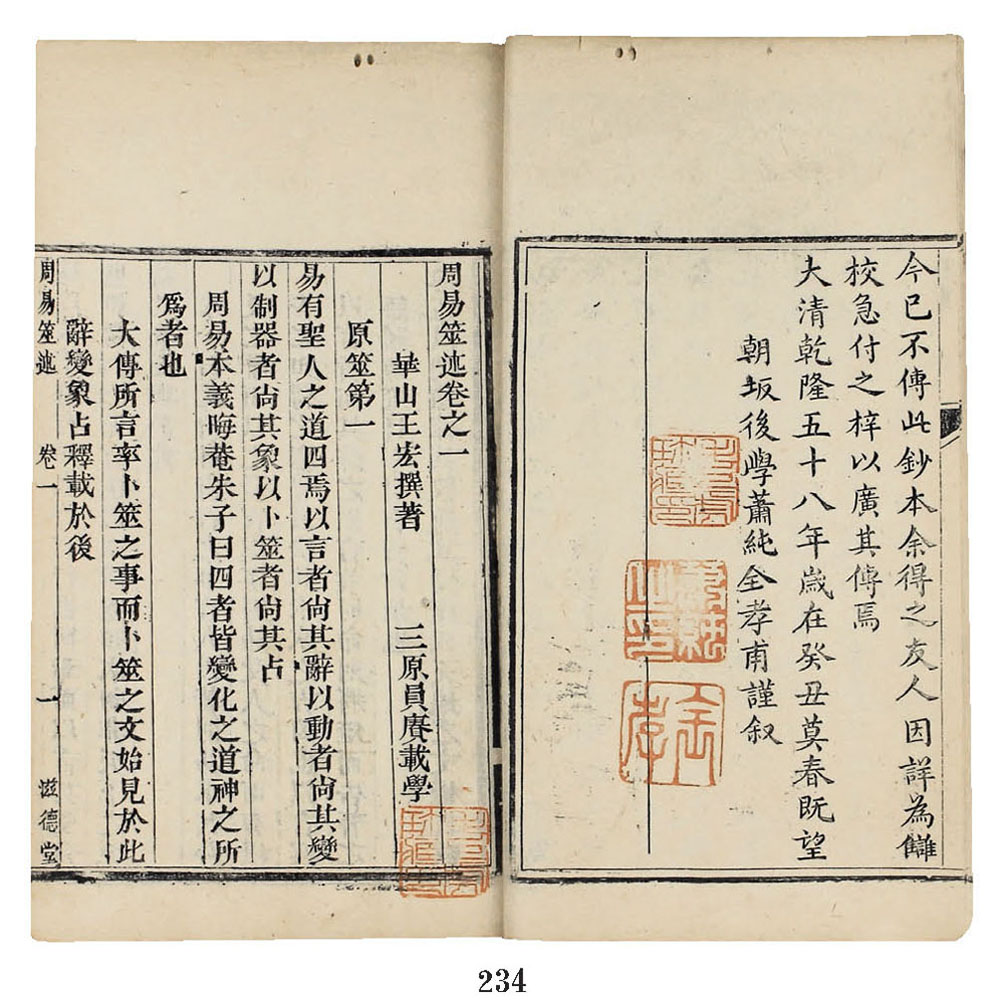 今已不傳此鈔本余得之友人因詳為讎
校急付之梓以廣其傳焉
大清乾隆五十八年歲在癸丑莫春既望
朝坂後學蕭純全孝甫謹叙
周易筮述卷之一
華山王宏撰著 三原員賡載學
原筮第一
易有聖人之道四焉以言者尙其辭以動者尙其變
以制器者尙其象以卜筮者尙其占
周易本義晦菴朱子曰四者皆變化之道神之所
爲者也
大傳所言率卜筮之事而卜筮之文始見於此
辭變象占釋載於後
周易筮述 卷一 一 滋德堂
234